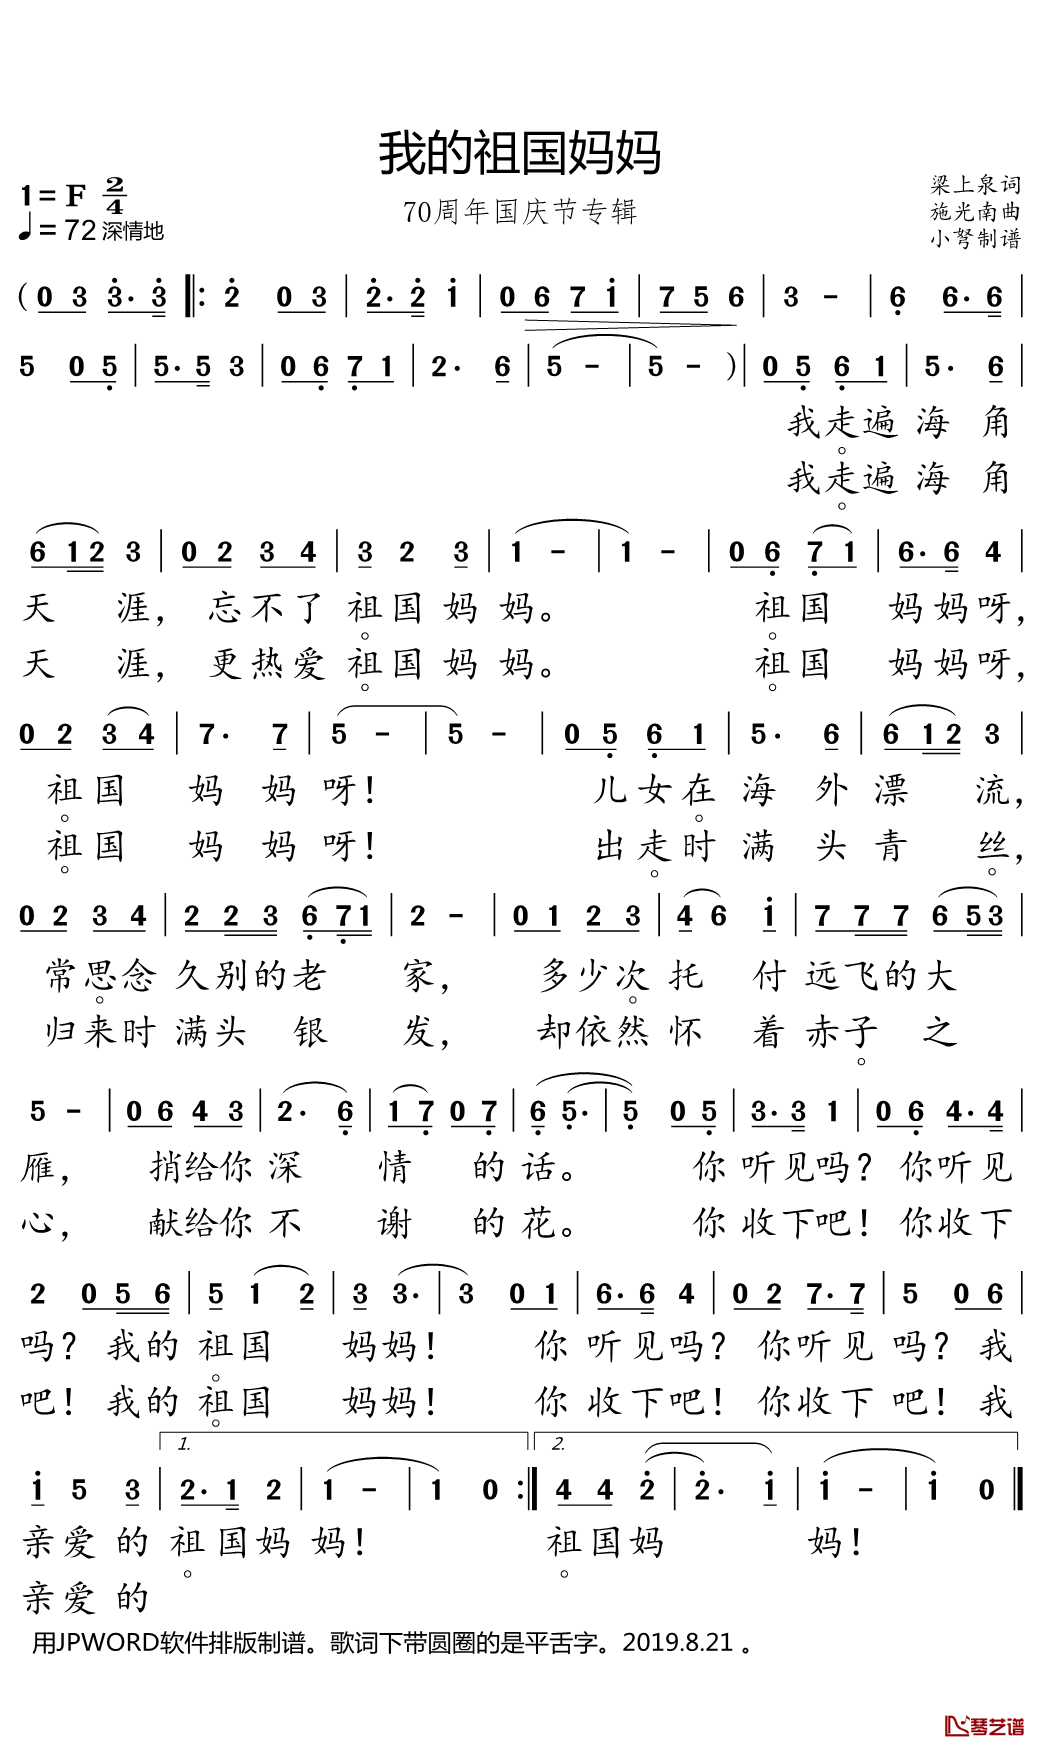 我的祖国妈妈
70周年国庆节专辑
1=F 2/4
♩=72 深情地
梁上泉词
施光南曲
小弩制谱
(0 3 3. 3 ‖: 2 0 3 | 2. 2 1 | 0 6 7 1 | 7 5 6 | 3 - | 6 6. 6 |
5 0 5 | 5. 5 3 | 0 6 7 1 | 2. 6 | 5 - | 5 - ) | 0 5 6 1 | 5. 6 |
我走遍 海 角
我走遍 海 角
6 1 2 3 | 0 2 3 4 | 3 2 3 | 1 - | 1 - | 0 6 7 1 | 6. 6 4 |
天 涯, 忘不了 祖国妈 妈。 祖国 妈妈呀,
天 涯, 更热爱 祖国妈 妈。 祖国 妈妈呀,
0 2 3 4 | 7. 7 | 5 - | 5 - | 0 5 6 1 | 5. 6 | 6 1 2 3 |
祖国 妈 妈 呀! 儿女在 海 外 漂 流,
祖国 妈 妈 呀! 出走时 满 头 青 丝,
0 2 3 4 | 2 2 3 6 7 1 | 2 - | 0 1 2 3 | 4 6 1 | 7 7 7 6 5 3 |
常思念 久别的老 家, 多少次 托 付 远飞的大
归来时 满头 银 发, 却依然 怀 着 赤子 之
5 - | 0 6 4 3 | 2. 6 | 1 7 0 7 | 6 5. | 5 0 5 | 3. 3 1 | 0 6 4. 4 |
雁, 捎给你 深 情 的 话。 你 听见吗? 你听见
心, 献给你 不 谢 的 花。 你 收下吧! 你收下
2 0 5 6 | 5 1 2 | 3 3. | 3 0 1 | 6. 6 4 | 0 2 7. 7 | 5 0 6 |
吗? 我的 祖国 妈妈! 你 听见吗? 你听见 吗? 我
吧! 我的 祖国 妈妈! 你 收下吧! 你收下 吧! 我
1. 2.
1 5 3 | 2. 1 2 | 1 - | 1 0 :‖ 4 4 2 | 2. 1 | 1 - | 1 0 ‖
亲爱的 祖国妈 妈! 祖国妈 妈!
亲爱的
用JPWORD软件排版制谱。歌词下带圆圈的是平舌字。2019.8.21 。
琴艺谱